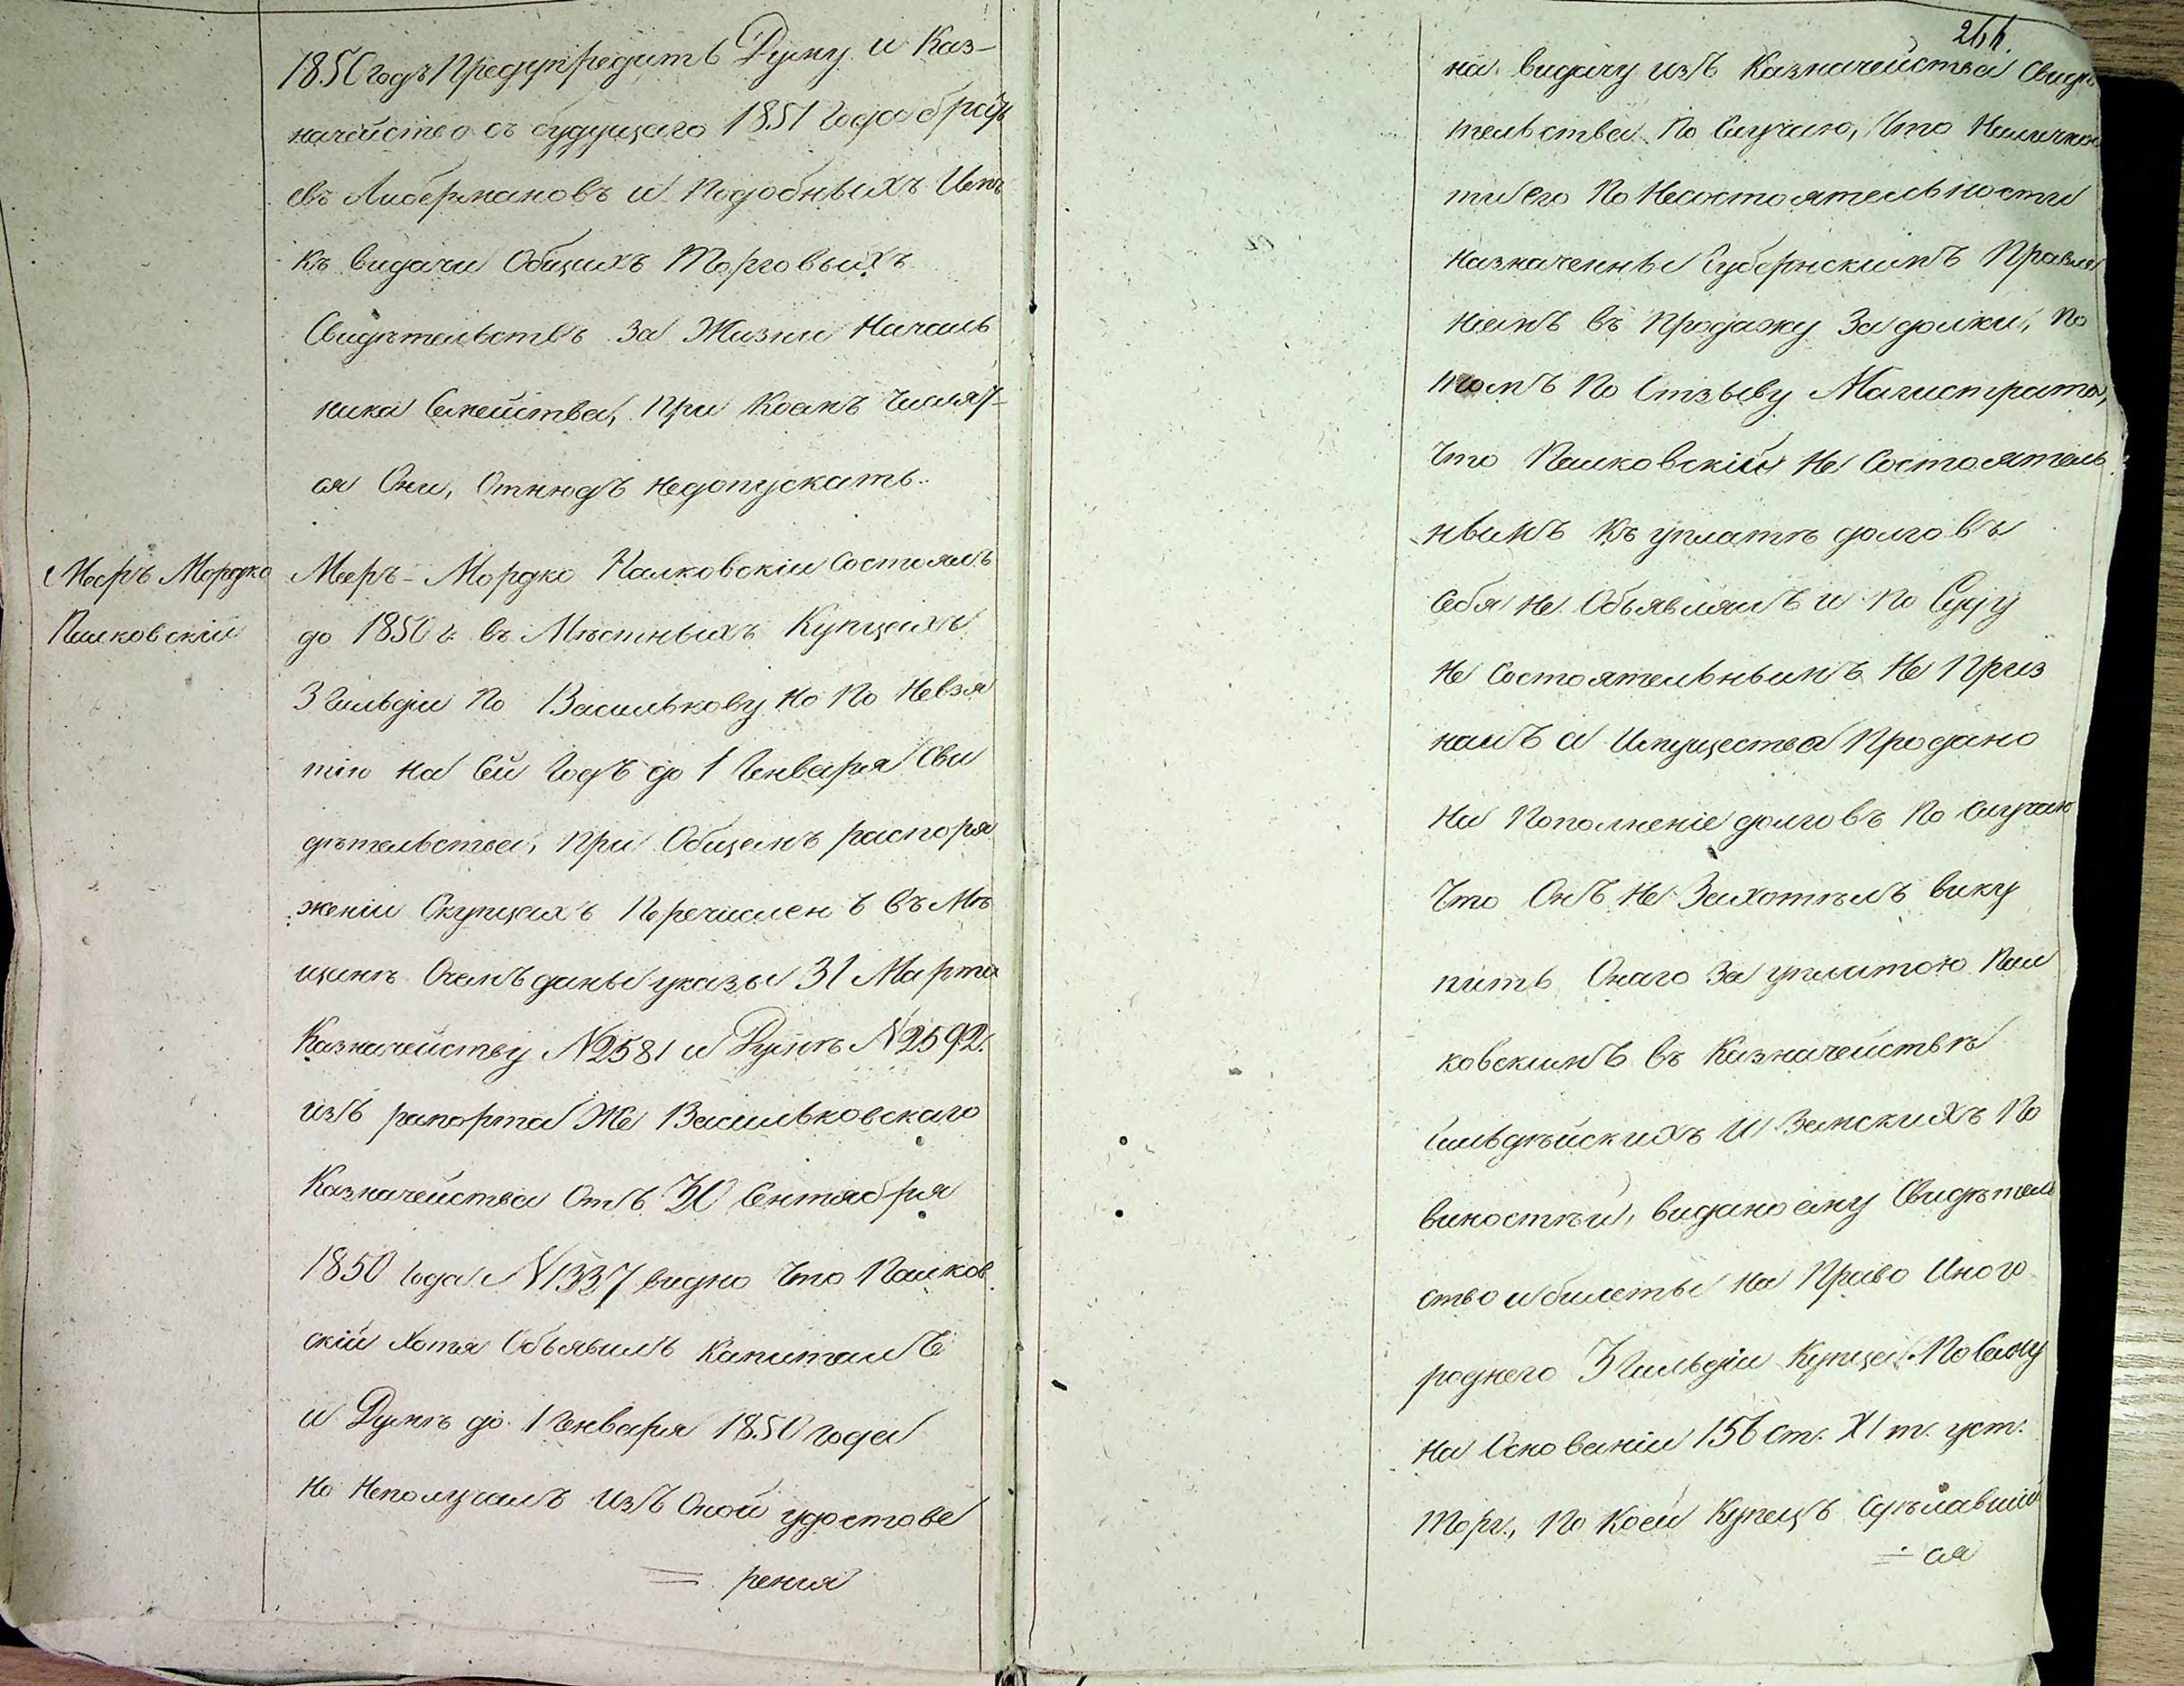 1850 годъ Предупредить Думу и Каз-
начейство съ будущаго 1851 года брать
евъ Либермановъ и Подобныхъ Имъ
къ видачи Общихъ Торговыхъ
Свидѣтельствъ за Жизни Началь
ника Семейства, При Коемъ Числят-
ся Они, Отнюдъ недопускать.
Меръ Мордко
Палковскій
Мееръ-Мордко Палковскій Состоялъ
до 1850 г. въ Мѣстныхъ Купцахъ
3 Гильдіи По Василькову Но По Невзя
тію На Сей Годъ до 1 Генваря Сви
дѣтельства, При Общемъ распоря
женіи Окупцахъ Перечисленъ въ Мѣ
щане Очемъ даны указы 31 Марта
Казначейству №2581 и Думѣ №2592.
изъ рапорта Же Васильковскаго
Казначейства Отъ 30 Сентября
1850 года №1337 видно Что Палков
скій Хотя Объявилъ Капиталъ
и Думѣ до 1 Генваря 1850 года
Но Неполучалъ Изъ Оной удостове
= ренія
на видачу изъ Казначейства Свидѣ
тельства По Случаю, Что
его По Несостоятельности
Назначены Губернскимъ Правле
ніемъ въ Продажу За долги, По
томъ По Отзыву Магистрата,
Что Палковскій Не Состоятель
нымъ Къ уплатѣ долговъ
Себя Не Объявлялъ и По Суду
Не Состоятельнымъ Не Приз
нанъ а Имущества Продано
На Пополненіе долговъ По Случаю
Что Онъ Не Захотѣлъ вику
пить Онаго За уплатою Пал
ковскимъ въ Казначействѣ
Гильдѣйскихъ И Земскихъ По
виностѣй, видано ему Свидѣтель
ство и билеты На Право Иного
роднего 3 Гильдіи Купца. По Сему
На Основаніи 156 ст. XI т. уст.
Торг., По Коей Купецъ Сдѣлавшій
= ся